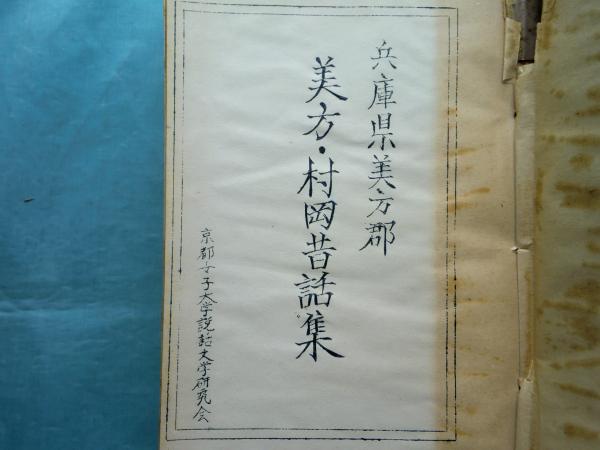 兵庫県美方郡
美方・村岡昔話集
京都女子大学説話文学研究会